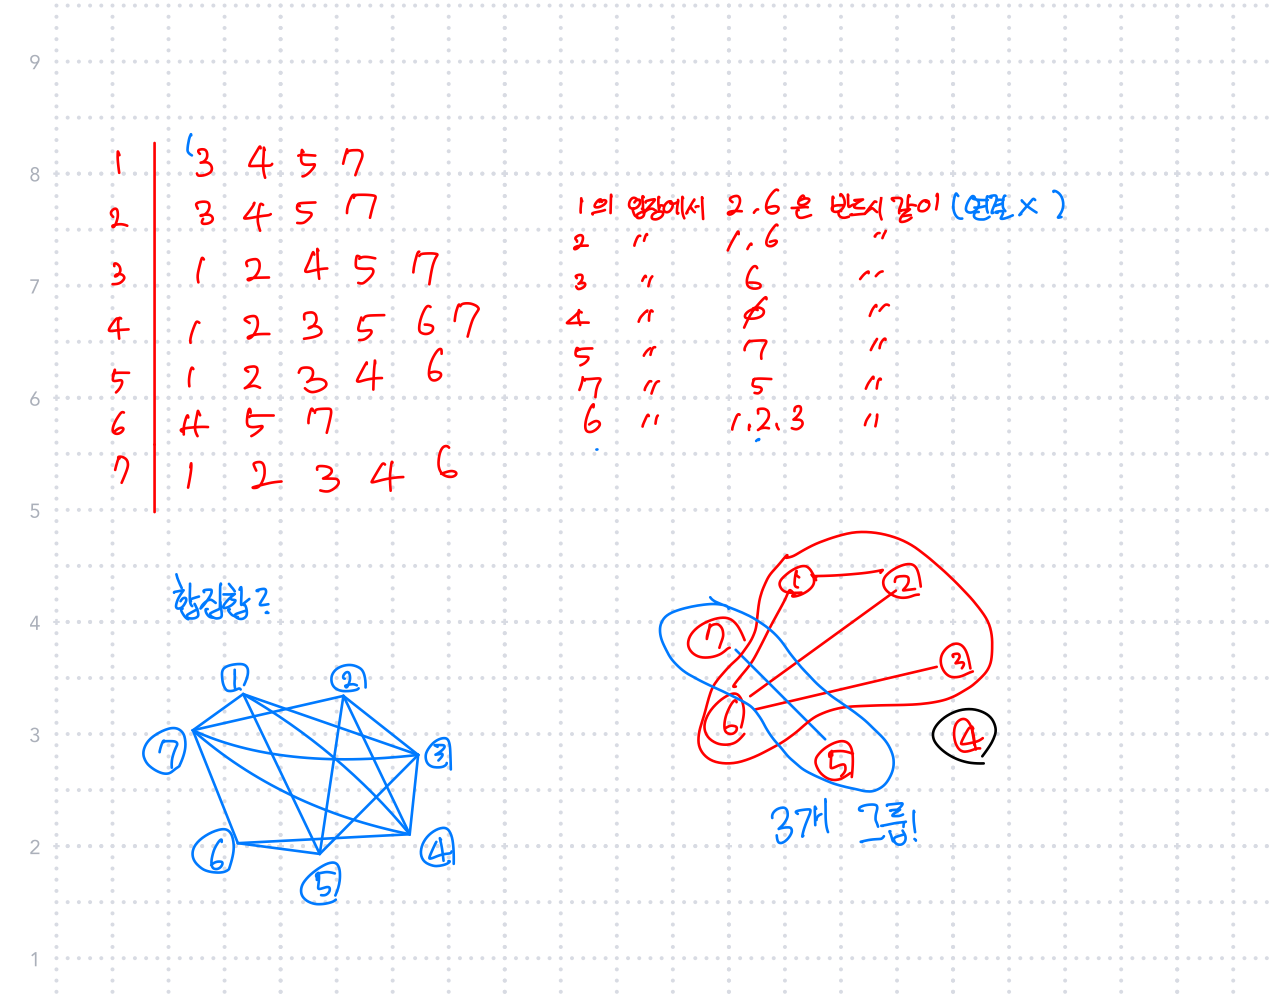 9
8
7
6
5
4
3
2
1
1 ( 3 4 5 7
2 3 4 5 7
3 1 2 4 5 7
4 1 2 3 5 6 7
5 1 2 3 4 6
6 4 5 7
7 1 2 3 4 6
1의 입장에서 2,6은 반드시 같이 (연결 × )
2 〃 1,6 〃
3 〃 6 〃
4 〃 ∅ 〃
5 〃 7 〃
7 〃 5 〃
6 〃 1,2,3 〃
합집합?
① ②
⑦ ③
⑥ ④
⑤
① ②
⑦ ③
⑥ ④
⑤
3개 그룹!